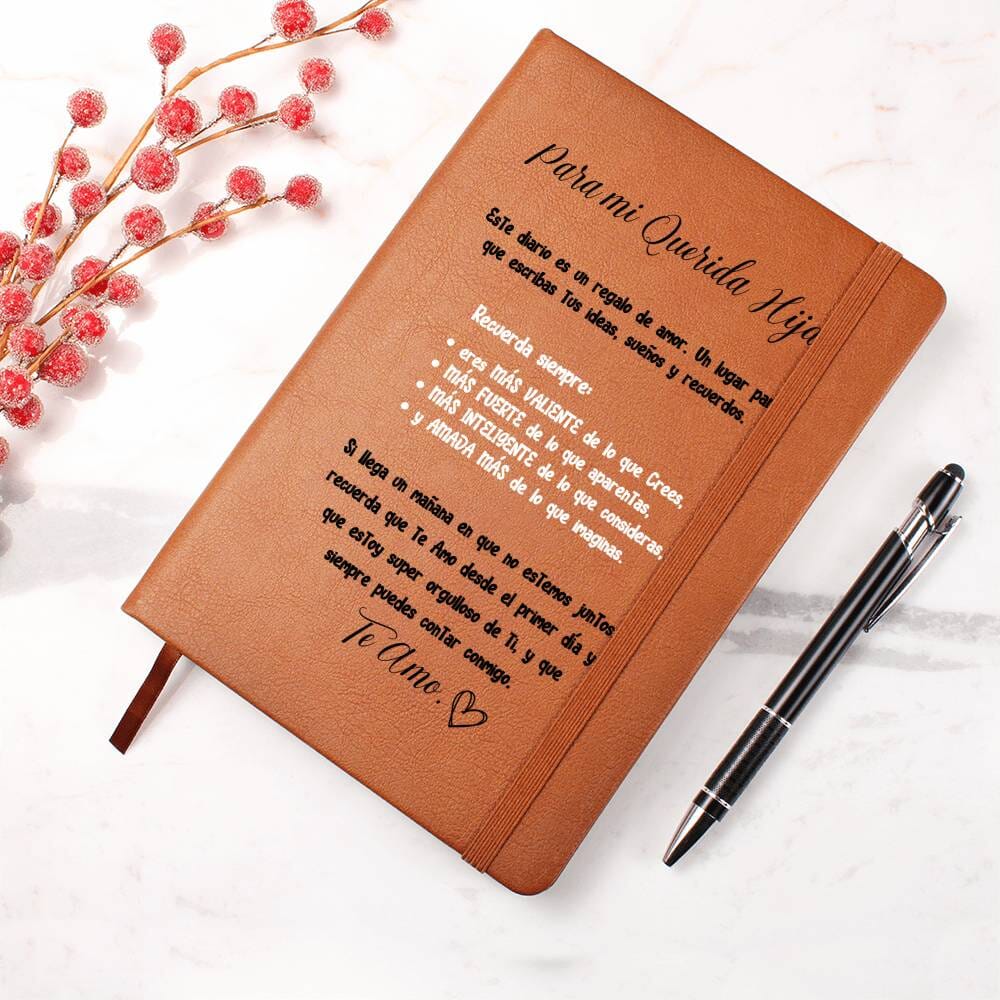 Para mi Querida Hija
Este diario es un regalo de amor. Un lugar par
que escribas Tus ideas, sueños y recuerdos.
Recuerda siempre:
• eres MÁS VALIENTE de lo que Crees,
• MÁS FUERTE de lo que aparentas,
• MÁS INTELIGENTE de lo que consideras,
• y AMADA MÁS de lo que imaginas.
Si llega un mañana en que no estemos juntos,
recuerda que Te Amo desde el primer día y
que estoy super orgulloso de Ti, y que
siempre puedes contar conmigo.
Te Amo.